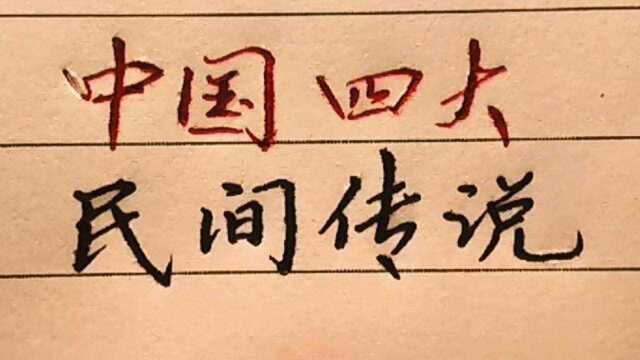 中国四大
民间传说